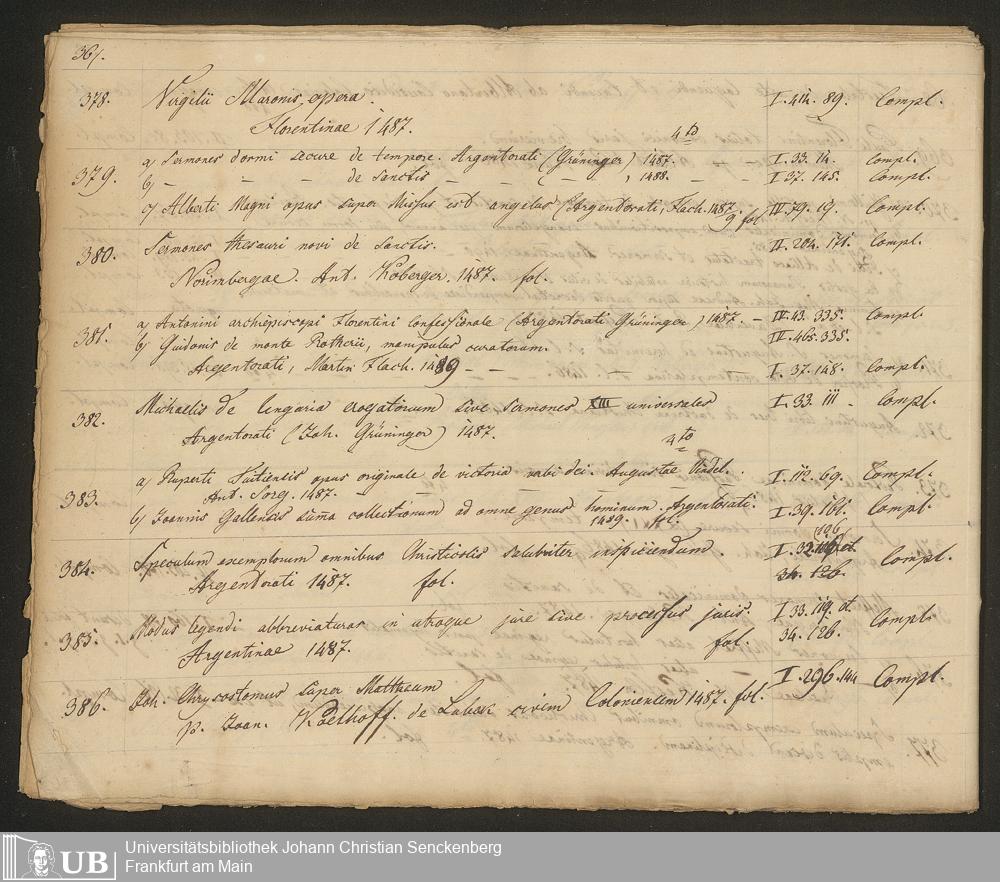 367.
378. Virgilii Maronis, opera. I. 414. 89. Compl.
Florentinae 1487. 4to
379. a) Sermones dormi secure de tempore. Argentorati (Grüninger) 1487. I. 33. 114. Compl.
b) — — — de Sanctis — — ( — . ) 1488. — — I 37. 145. Compl.
c) Alberti Magni opus super Missus est angelus (Argentorati, Flach. 1487. IV. 79. 19. Compl.
9 fol.
380. Sermones thesauri novi de Sanctis. II. 204. 171. Compl.
Norimbergae. Ant. Koberger. 1487. fol.
381. a) Antonini archiepiscopi Florentini Confessionale (Argentorati Grüninger) 1487. — IV. 43. 335. Compl.
b) Guidonis de monte Rotherii, manipulus curatorum. IV. 465. 335.
Argentorati, Martin Flach. 1489 — — I. 37. 148. Compl.
382. Michaelis de Ungaria evagatorium sive Sermones XIII universales I. 33. 111 — Compl.
Argentorati (Joh. Grüninger) 1487. 4to
383. a) Ruperti Tuitiensis opus originale de victoria verbi dei. Augustae Vindel. I. 112. 69. Compl.
Ant. Sorg. 1487. — — — —
b) Joannis Gallensis summa collectionum ad omne genus hominum. Argentorati I. 39. 161. Compl.
1489. fol.
106
384. Speculum exemplorum omnibus Christicolis salubriter inspiciendum. I. 32. et Compl.
Argentorati 1487. fol. 34. 126.
385. Modus legendi abbreviaturas in utroque jure sive processus juris. I 33. 119. et Compl.
Argentinae 1487. fol. 34. 126.
386. Joh. Chrysostomus super Mattheum I. 296. 144 Compl.
p. Joan. Koelhoff. de Lubek civem Coloniensem 1487. fol.
UB
Universitätsbibliothek Johann Christian Senckenberg
Frankfurt am Main